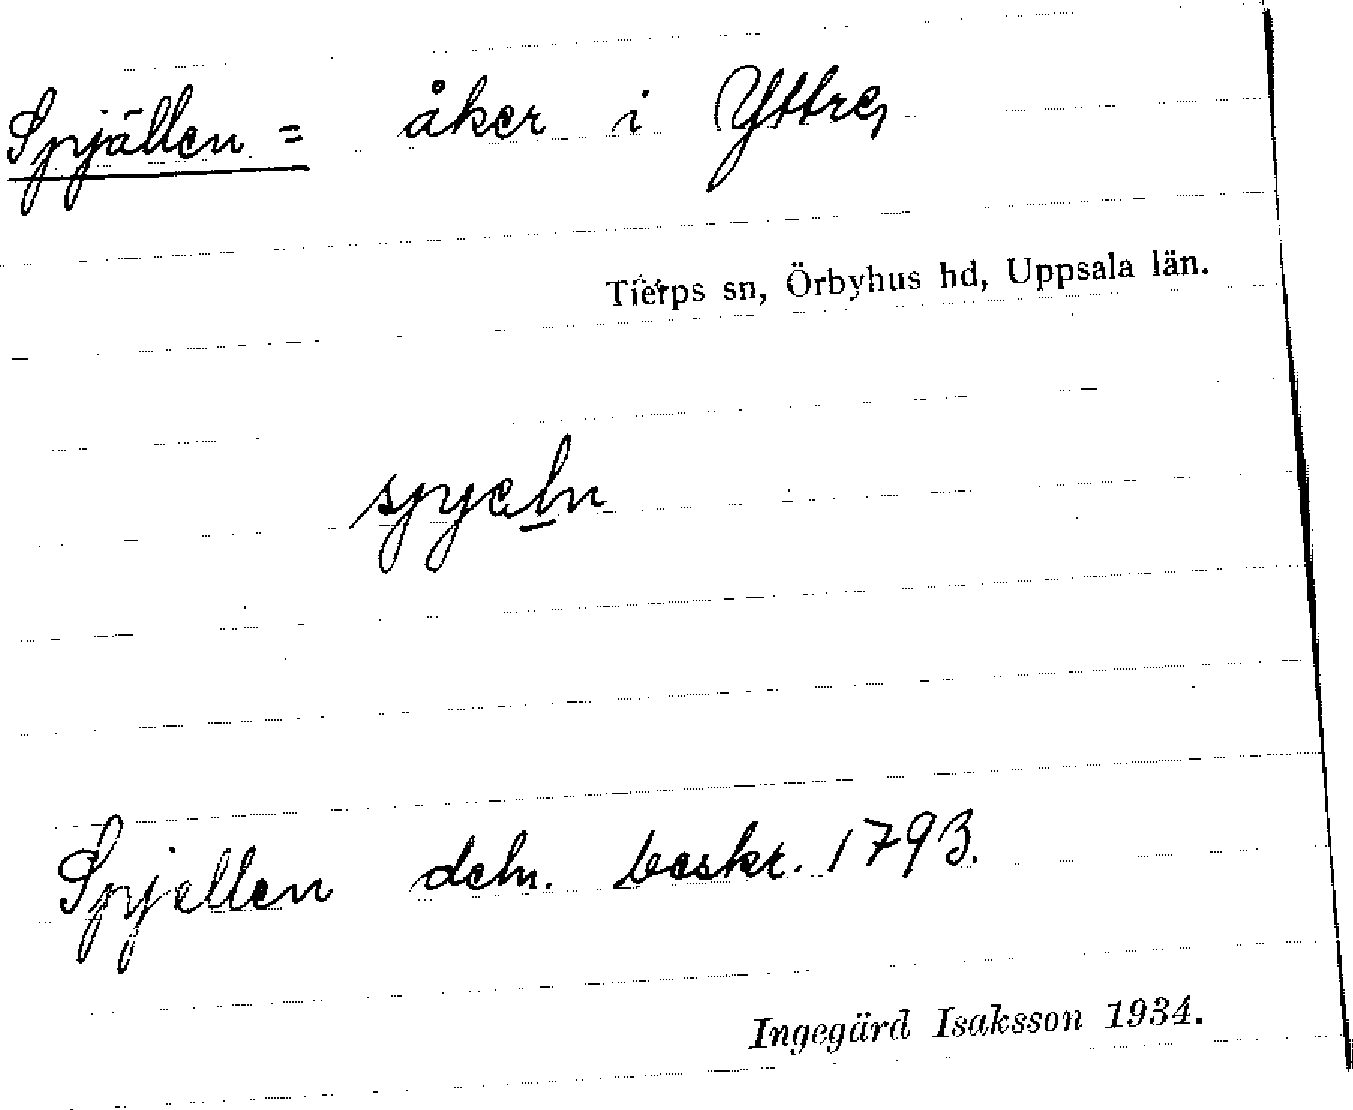 Spjällen = åker i Yttre,
Tierps sn, Örbyhus hd, Uppsala län.
spyeln
Spjellen deln. beskr. 1793.
Ingegärd Isaksson 1934.